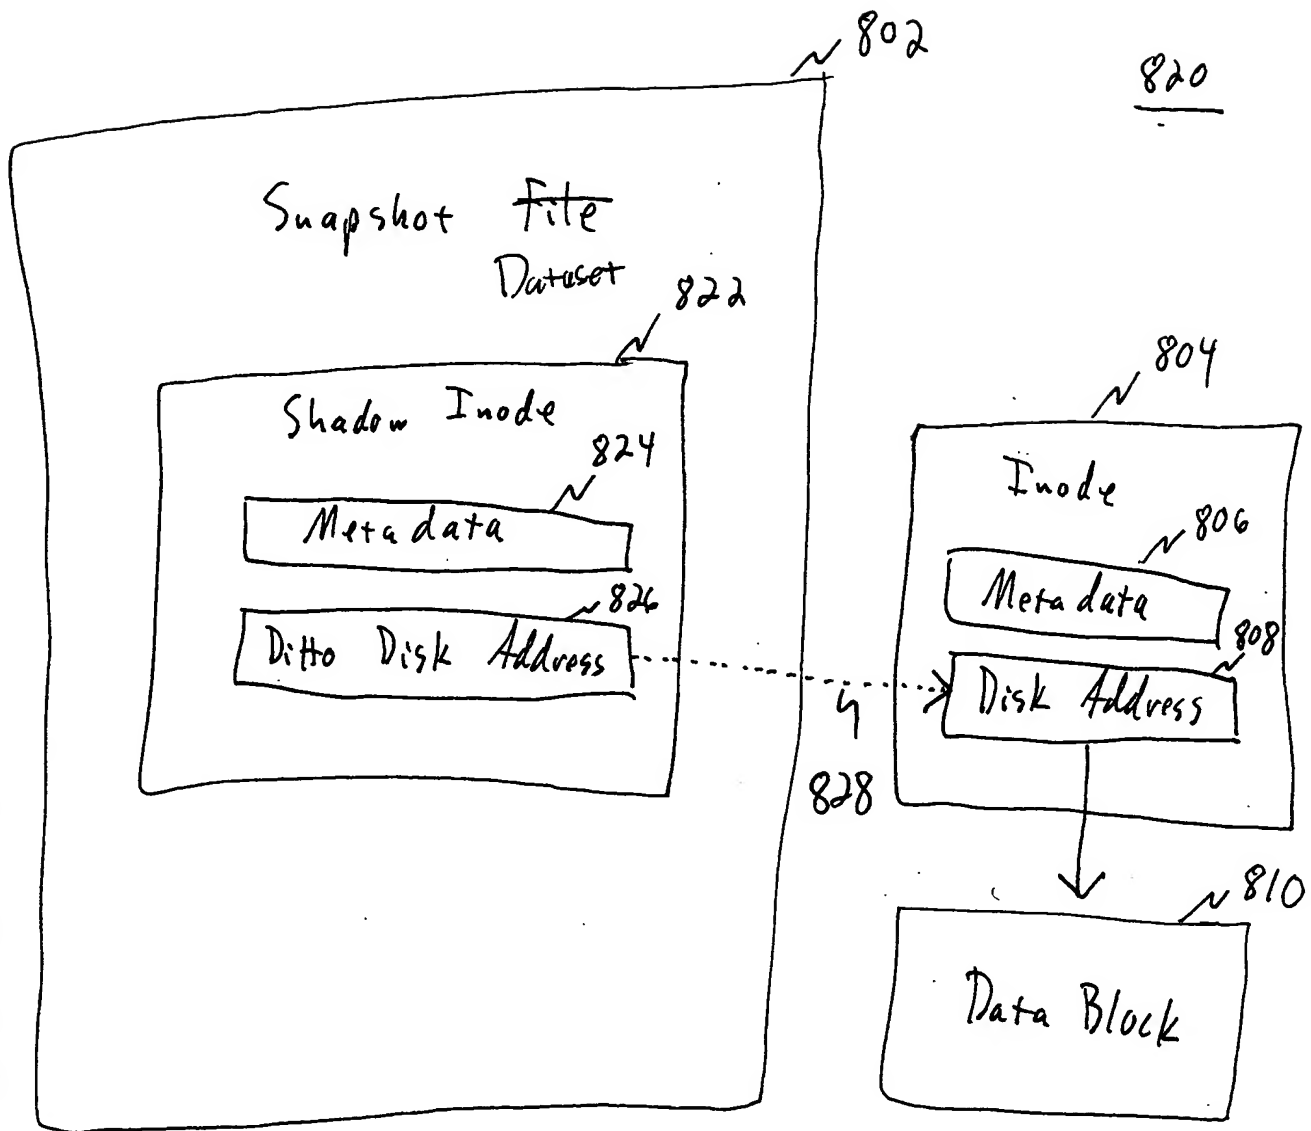 802
820
Snapshot File
Dataset
822
Shadow Inode
824
Metadata
826
Ditto Disk Address
828
804
Inode
806
Metadata
808
Disk Address
810
Data Block